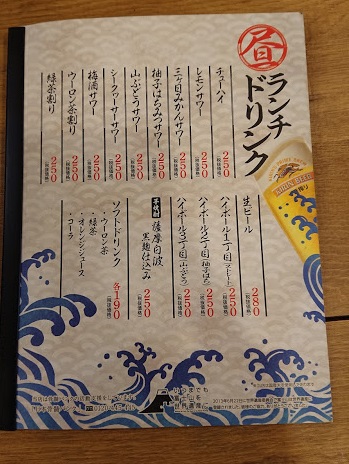 昼
ランチ
ドリンク
チューハイ 250 (税抜価格)
レモンサワー 250 (税抜価格)
三ヶ日みかんサワー 250 (税抜価格)
柚子はちみつサワー 250 (税抜価格)
山ぶどうサワー 250 (税抜価格)
シークヮーサーサワー 250 (税抜価格)
梅酒サワー 250 (税抜価格)
ウーロン茶割り 250 (税抜価格)
緑茶割り 250 (税抜価格)
生ビール 280 (税抜価格)
ハイボール1丁目 250 (税抜価格)
ハイボール2丁目 (柚子はち) 250 (税抜価格)
ハイボール3丁目 (山ぶどう) 250 (税抜価格)
芋焼酎 薩摩白波 黒麹仕込み 250 (税抜価格)
ソフトドリンク 各190 (税抜価格)
・ウーロン茶
・緑茶
・オレンジジュース
・コーラ
KIRIN
いつまでも
富士山を
世界遺産に